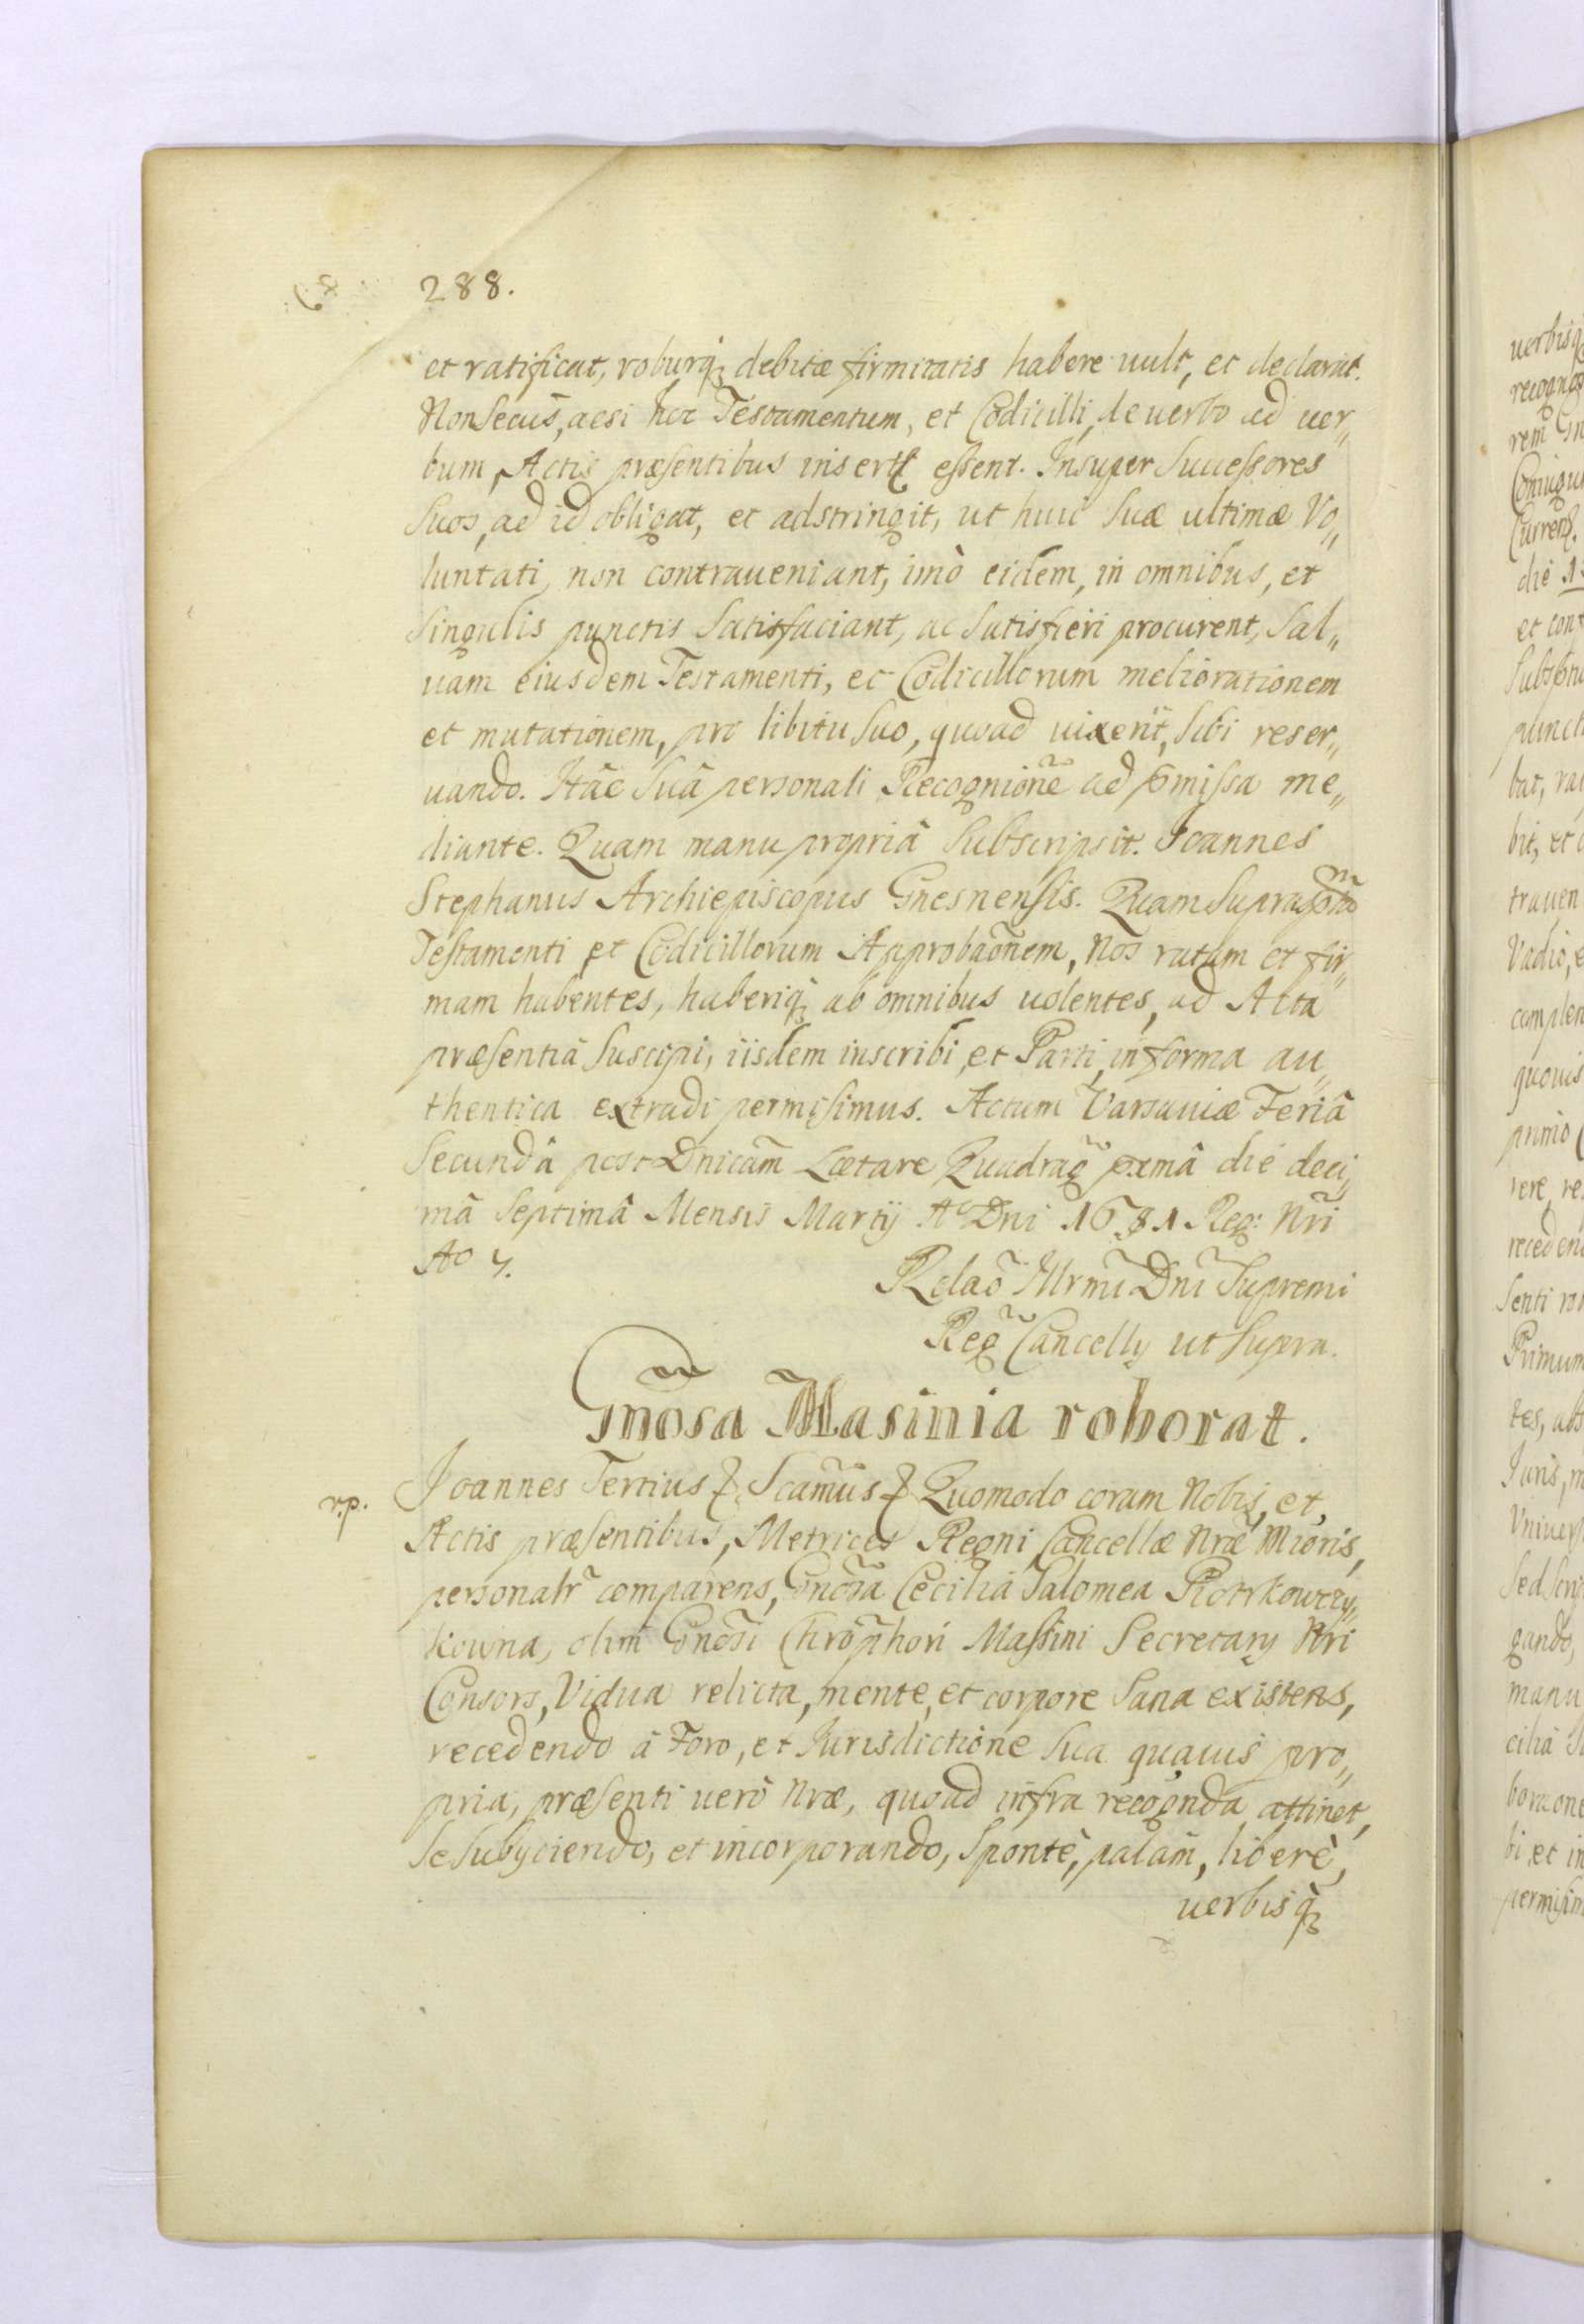 288.
et ratificat, roburq₃ debitæ firmitatis habere uult, et declarat.
Non Secus, acsi hoc Testamentum, et Codicilli, de uerbo ad uer„
bum, Actis præsentibus inserti essent. Insuper Successores
Suos, ad id obligat, et adstringit, ut huic Suæ ultimæ Vo„
luntati, non contraueniant, imò eidem, in omnibus, et
Singulis punctis Satisfaciant, ac Satisfieri procurent, Sal„
uam eiusdem Testamenti, et Codicillorum meliorationem
et mutationem, pro libitu Suo, quoad uixerit, Sibi reser„
uando. Hâc Suâ personali Recognione ad pmissa me„
diante. Quam manu propriâ Subscripsit. Joannes
Stephanus Archiepiscopus Gnesnensis. Quam
Testamenti et Codicillorum Approbaõnem, Nos ratam et fir„
mam habentes, haberiq₃ ab omnibus uolentes, ad Acta
præsentia Suscipi, iisdem inscribi, et Parti, in forma au„
thentica extradi permisimus. Actum Varsauiæ Feriâ
Secundâ post Dnicam Lætare Quadrag̃exmâ die deci„
mâ Septimâ Mensis Martij Aº Dni 1681 Reg: Nri
Aº 7.
Relaõ Illrmi Dni Supremi
Reg̃ Cancellÿ ut Supra.
Gnõsa Masinia roborat.
rp.
Joannes Tertius Scamus Quomodo coram Nobis, et,
Actis præsentibus, Metrices Regni Cancellæ Nræ Mioris,
personalr̃ comparens, Gnõsa Cecilia Salomea Piotrkowczy„
kowna, olim Gnõsi Chrõphori Massini Secretarÿ Nri
Consors, Vidua relicta, mente, et corpore Sana existens,
recedendo à Foro, et Jurisdictione Sua quauis pro„
pria, præsenti uerò Nræ, quoad infra recognda attinet,
Se Subÿciendo, et incorporando, Spontè, palàm, liberè,
uerbisq₃